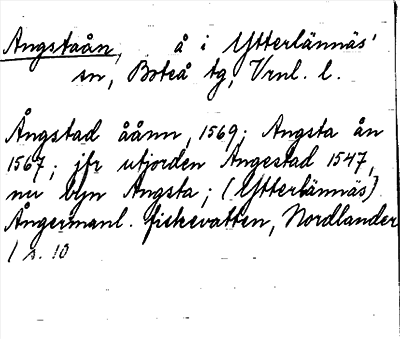 Ångstaån, å i Ytterlännäs'
sn, Boteå tg, Vrnl. l.
Ångstad åånn, 1569; Ångsta ån
1567; jfr utjorden Ångestad 1547,
nu byn Ångsta; (Ytterlännäs)
Ångermanl. fiskevatten, Nordlander
1 s. 10